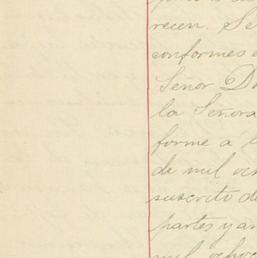 recen. Se
conformes
Señor Do
la Señora
forme á
de mil och
suscrito de
partes y an
mil ochoc